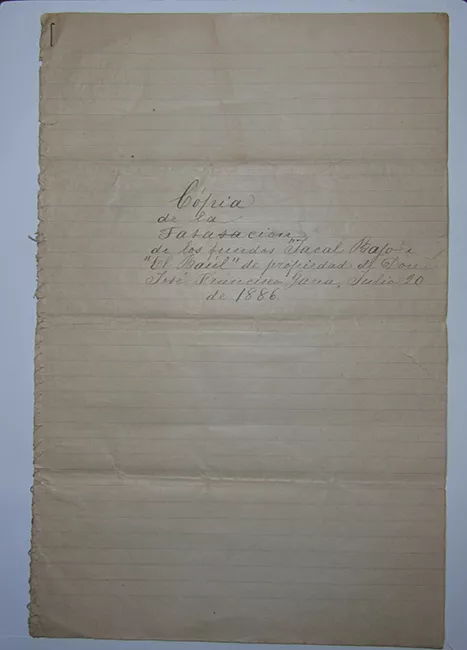 Cópia
de la
Tasasacion
de los fundos "Jacal Bajo" i
"El Baúl" de propiedad de Don
José Francisco Jana, Julio 20
de 1886.